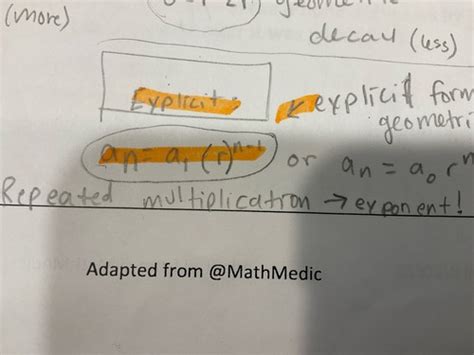 (more)
decay (less)
Explicit
explicit form
geometri
aₙ = a₁ (r)ⁿ⁻¹ or aₙ = a₀ rⁿ
Repeated multiplication → exponent!
Adapted from @MathMedic